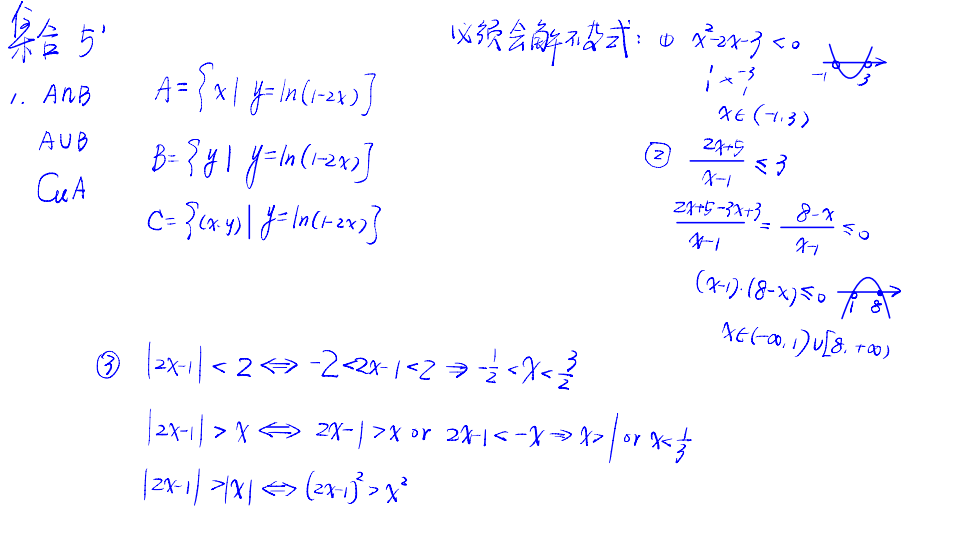 集合 5'
1. A∩B
A∪B
CuA
A={x| y=ln(1-2x)}
B={y| y=ln(1-2x)}
C={(x·y)| y=ln(1-2x)}
必须会解不等式: ① x²-2x-3<0
1 -3
1 × 1
-1 3
x∈(-1,3)
② (2x+5)/(x-1) ≤3
(2x+5-3x+3)/(x-1) = (8-x)/(x-1) ≤0
(x-1)·(8-x)≤0
1 8
x∈(-∞,1)∪[8,+∞)
③ |2x-1|<2 ⟺ -2<2x-1<2 ⇒ -1/2<x<3/2
|2x-1|>x ⟺ 2x-1>x or 2x-1<-x ⇒ x>1 or x<1/3
|2x-1|>|x| ⟺ (2x-1)²>x²